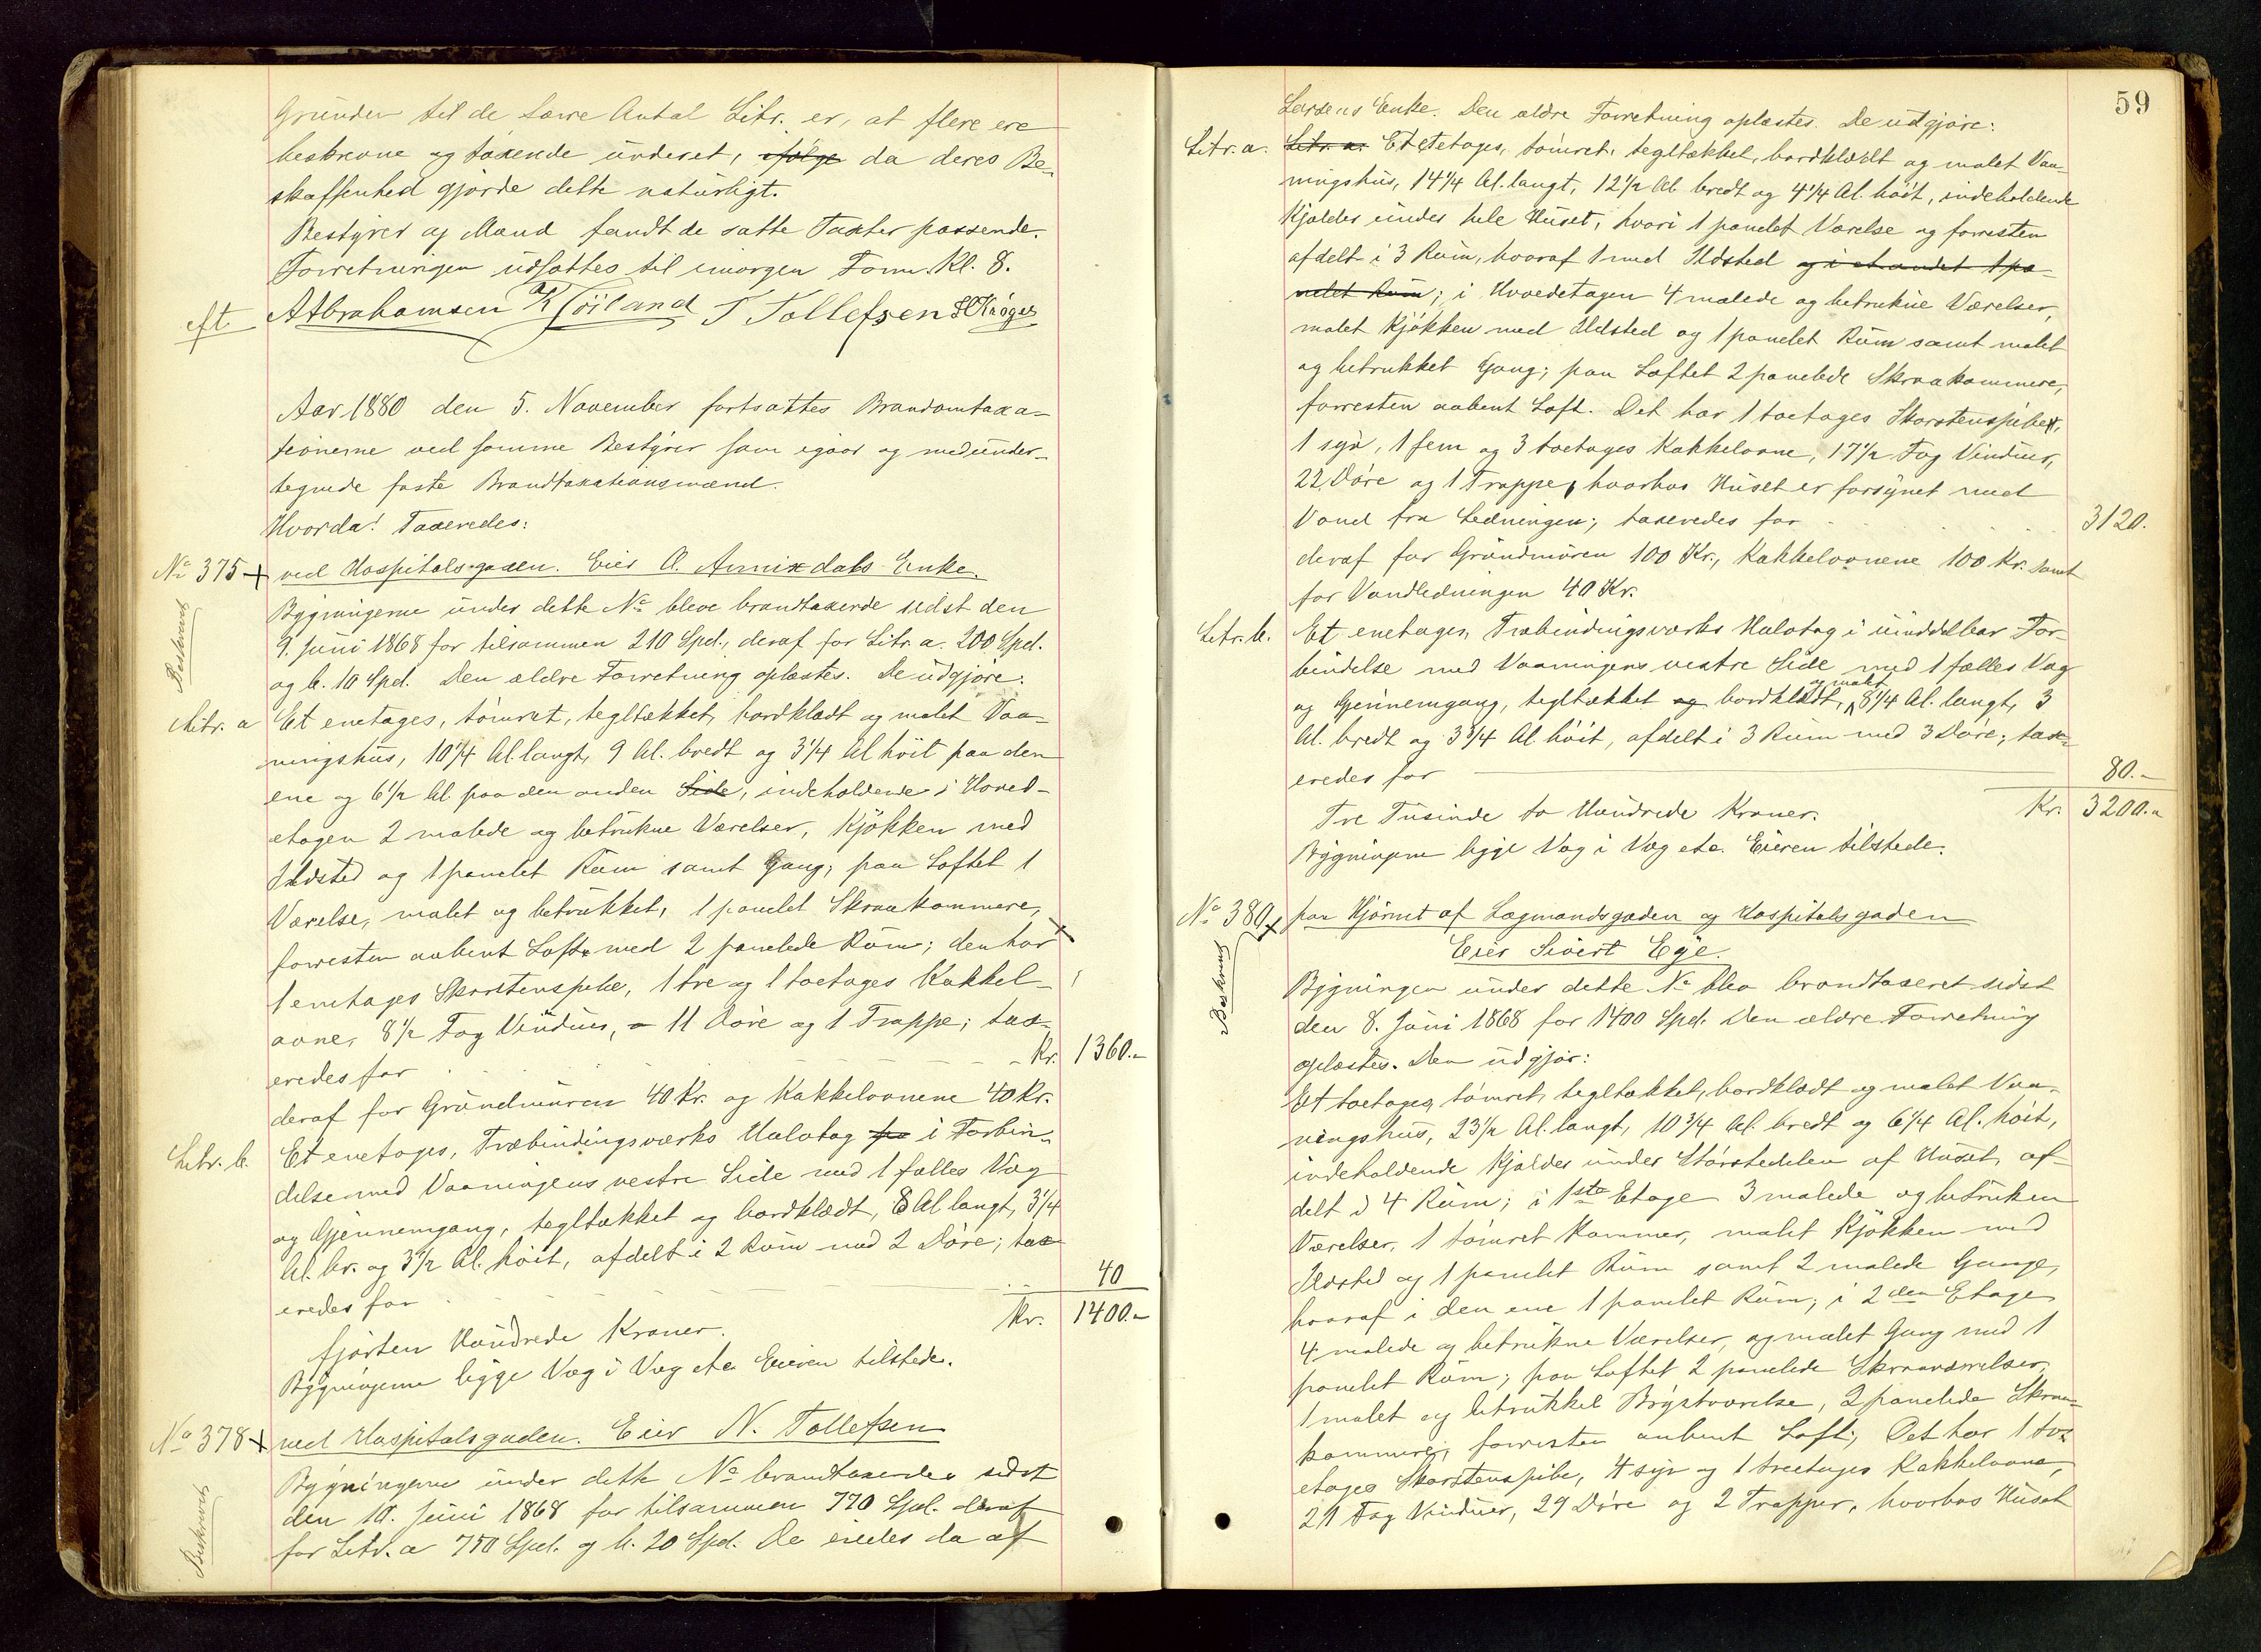 Grunden til de færre Antal Litr. er, at flere ere
beskrevne og taxerede underet, ifølge da deres Be-
skaffenhed gjorde dette naturligt.
Bestyrer og Mænd fandt de satte Taxter passende.
Forretningen udsattes til imorgen Form. Kl. 8.
eft. A Abrahamsen K Höiland T Tollefsen S Kröger
Aar 1880 den 5. November fortsattes Brandomtaxa-
tionerne ved samme Bestyrer som igaar og medunder-
tegnede faste Brandtaxationsmænd.
Hvorda! Taxeredes:
No 375 ved Hospitalsgaden. Eier A. Annixdals Enke.
Beskrevet
Bygningerne under dette No bleve brandtaxerede sidst den
9. Juni 1868 for tilsammen 210 Spd., deraf for Litr. a. 200 Spd.
og b. 10 Spd. Den ældre Forretning oplæstes. De udgjøre:
Litr. a Et enetages, tömret, tegltækket, bordklædt og malet Vaa-
ningshus, 10 1/4 Al. langt, 9 Al. bredt og 3 1/4 Al höit paa den
ene og 6 1/2 Al. paa den anden Side, indeholdende i Hoved-
etagen 2 malede og betrukne Værelser, Kjøkken med
Ildsted og 1 panelet Rum samt Gang; paa Loftet 1
Værelse, malet og betrukket, 1 panelet Skraakammere,
forresten aabent Loft med 2 panelede Rum; den har
1 enetages Skorstenspibe, 1 tre og 1 toetages Kakkel-
ovne, 8 1/2 Fag Vinduer, 11 Döre og 1 Trappe; tax-
eredes for Kr. 1360.-
deraf for Grundmuren 40 Kr. og Kakkelovnene 40 Kr.
Litr. b. Et enetages, Træbindingsværks Halvtag i Forbin-
delse med Vaaningens vestre Side med 1 fælles Væg
og Gjennemgang, tegltækket og bordklædt, 8 Al langt, 3 1/4
Al. br. og 3 1/2 Al. höit, afdelt i 2 Rum med 2 Döre; tax-
eredes for 40
fjorten Hundrede Kroner. Kr. 1400.-
Bygningerne ligge Væg i Væg etc. Eieren tilstede.
No 378 ved Hospitalsgaden. Eier N. Tollefsen
Beskrevet
Bygningerne under dette No brandtaxeredes sidst
den 10. Juni 1868 for tilsammen 770 Spd. deraf
for Litr. a 750 Spd. og b. 20 Spd. De eiedes da af
59
Larsens Enke. Den ældre Forretning oplæstes. De udgjøre:
Litr. a. Litr. a. Et etetages, tömret, tegltækket, bordklædt og malet Vaa-
ningshus, 14 1/4 Al. langt, 12 1/2 Al. bredt og 4 1/4 Al. höit, indeholdende
Kjælder under hele Huset, hvori 1 panelet Værelse og forresten
afdelt i 3 Rum, hvoraf 1 med Ildsted og i et andet 1 pa-
nelet Rum; i Hovedetagen 4 malede og betrukne Værelser,
malet Kjökken med Ildsted og 1 panelet Rum samt malet
og betrukket Gang; paa Loftet 2 panelede Skraakammere,
forresten aabent Loft. Det har 1 toetages Skorstenspibe,
1 syv, 1 fem og 3 toetages Kakkelovne, 17 1/2 Fag Vinduer,
22 Döre og 1 Trappe, hvorhos Huset er forsynet med
Vand fra Ledningen; taxeredes for 3120.
deraf for Grundmuren 100 Kr., Kakkelovnene 100 Kr. samt
for Vandledningen 40 Kr.
Litr. b. Et enetages, Træbindingsværks Halvtag i umiddelbar For-
bindelse med Vaaningens vestre Side med 1 fælles Væg
og Gjennemgang, tegltækket og bordklædt, og malet 8 1/4 Al. langt, 3
Al. bredt og 3 3/4 Al. höit, afdelt i 3 Rum med 3 Döre; tax-
eredes for 80.-
Tre Tusinde to Hundrede Kroner. Kr. 3200.-
Bygningerne ligge Væg i Væg etc. Eieren tilstede.
No 380 paa Hjørnet af Lagmandsgaden og Hospitalsgaden
Eier Sivert Eye.
Beskrevet
Bygningen under dette No blev brandtaxeret sidst
den 8. Juni 1868 for 1400 Spd. Den ældre Forretning
oplæstes. Den udgjør:
Et toetages, tömret, tegltækket, bordklædt og malet Vaa-
ningshus, 23 1/2 Al. langt, 10 3/4 Al. bredt og 6 1/4 Al. höit,
indeholdende Kjælder under Störstedelen af Huset, af-
delt i 4 Rum; i 1ste Etage 3 malede og betrukne
Værelser, 1 tömret Kammer, malet Kjökken med
Ildsted og 1 panelet Rum samt 2 malede Gange,
hvoraf i den ene 1 panelet Rum; i 2den Etage
4 malede og betrukne Værelser, og malet Gang med 1
panelet Rum; paa Loftet 2 panelede Skraaværelser,
1 malet og betrukket Brystværelse, 2 panelede Skraa-
kammere, forresten aabent Loft; Det har 1 to-
etages Skorstenspibe, 4 syv og 1 treetages Kakkelovne,
21 Fag Vinduer, 29 Döre og 2 Trapper, hvorhos Huset